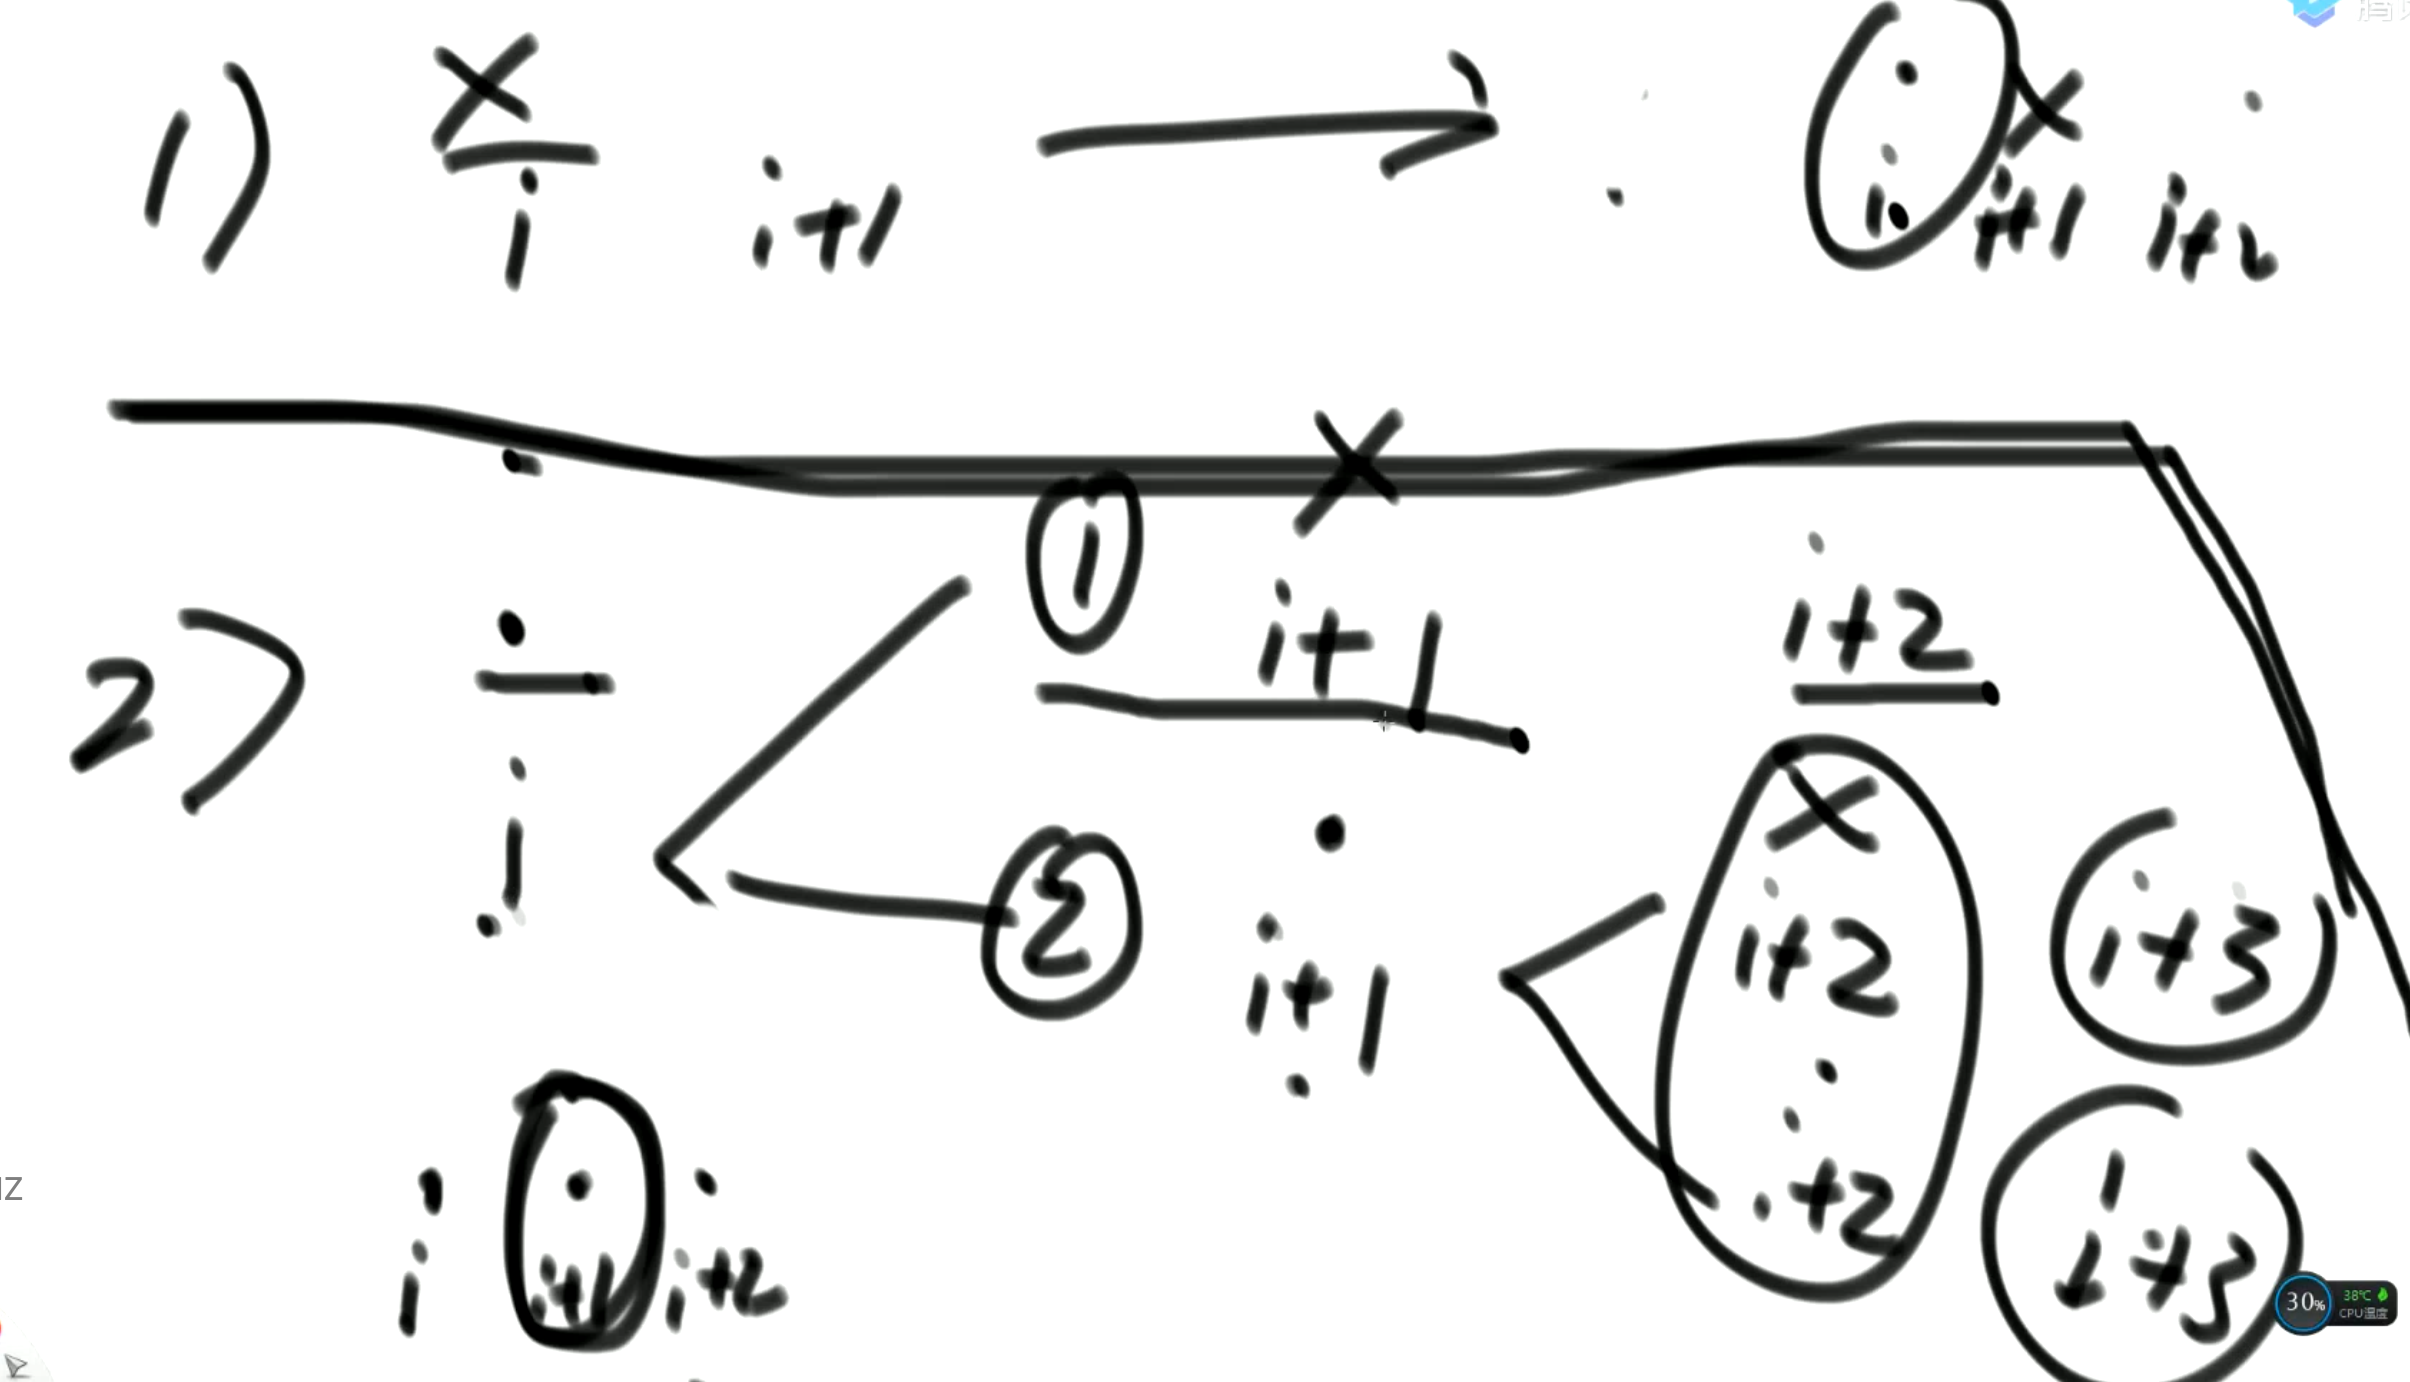 1) × i i+1 → . i. × i+1 i+2
2> · i
① × i+1 i+2
② · i+1 × i+2 i+3
· i+2 i+3
i i+1 i+2
30% 38℃
CPU温度